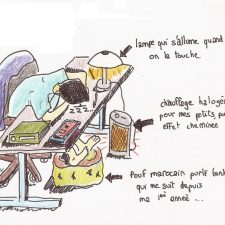 lampe qui s'allume quand
on la touche.
zzzz
chauffage halogè
pour mes petits
effet cheminée
Pouf marocain porte bonh
qui me suit depuis
ma 1ère année ...